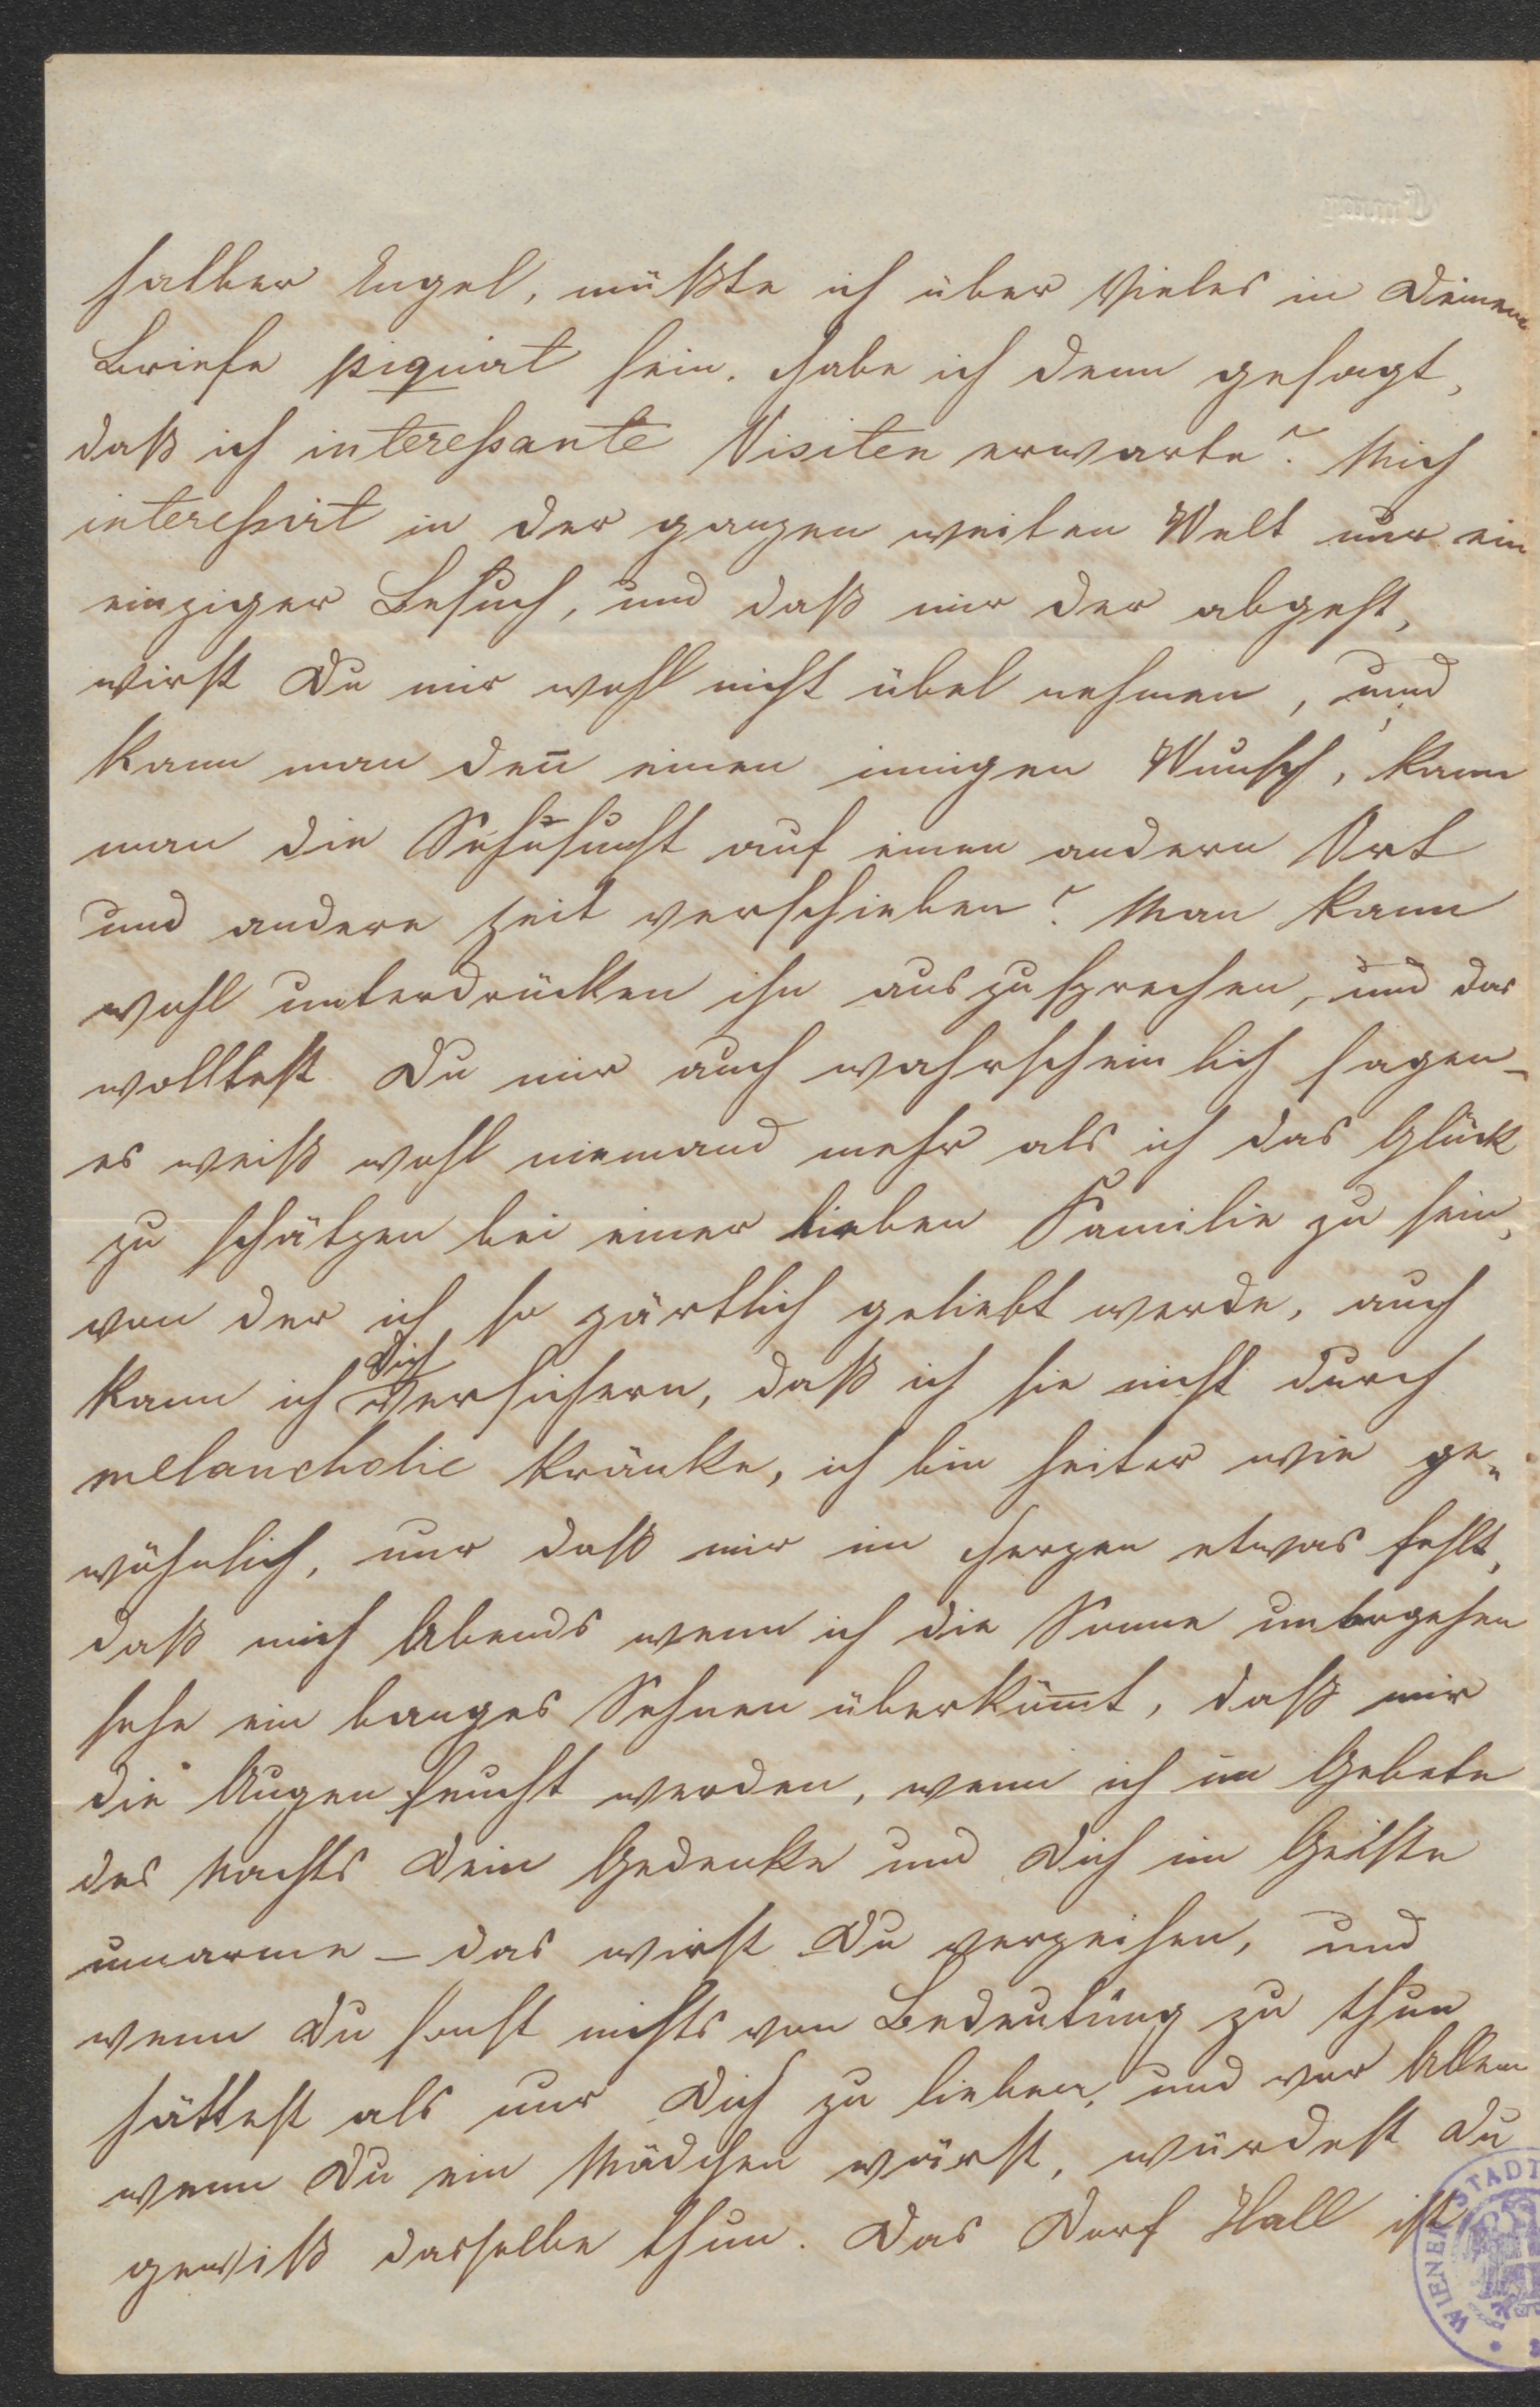 halber Engel, müßte ich über Vieles in Deinem
Briefe piquirt sein. Habe ich denn gesagt,
daß ich interessante Visiten erwarte? Mich
interessirt in der ganzen weiten Welt nur ein
einziger Besuch, und daß mir der abgeht,
wirst Du mir wohl nicht übel nehmen, und
kann man den̅ einen innigen Wunsch, kann
man die Sehnsucht auf einen andern Ort
und andere Zeit verschieben? Man kann
wohl unterdrücken ihn auszusprechen, und das
wolltest Du mir auch wahrscheinlich sagen_
es weiß wohl niemand mehr als ich das Glück
zu schätzen bei einer lieben Familie zu sein,
von der ich so zärtlich geliebt werde, auch
kann ich Dich versichern, daß ich sie nicht durch
melancholie kränke, ich bin heiter wie ge„
wöhnlich, nur daß mir im Herzen etwas fehlt,
daß mich Abends wenn ich die Sonne untergehen
sehe ein banges Sehnen überküm̅t, daß mir
die Augen feucht werden, wenn ich im Gebete
des Nachts Dein Gedenke und Dich im Geiste
umarme – das wirst Du verzeihen, und
wenn Du sonst nichts von Bedeutung zu thun
hättest als nur Dich zu lieben, und vor Allem
wenn Du ein Mädchen wärst, würdest Du
gewiß dasselbe thun. Das Dorf Hall ist
WIENER STADT